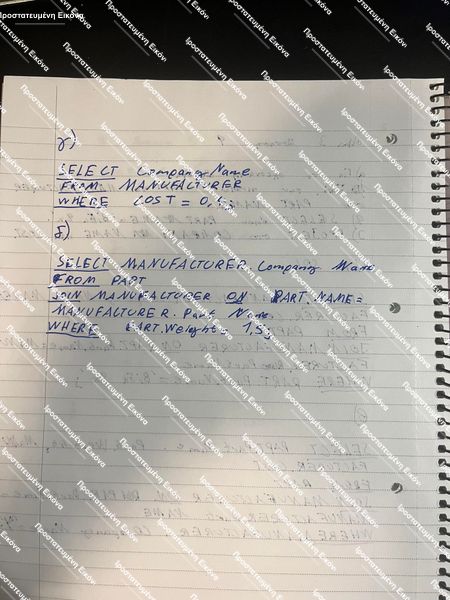 Προστατευμένη Εικόνα
γ)
SELECT Company Name
FROM MANUFACTURER
WHERE COST = 0,4;
δ)
SELECT MANUFACTURER. Company Name
FROM PART
JOIN MANUFACTURER ON PART.NAME=
MANUFACTURER. Part Name.
WHERE PART.Weight= 1,5;